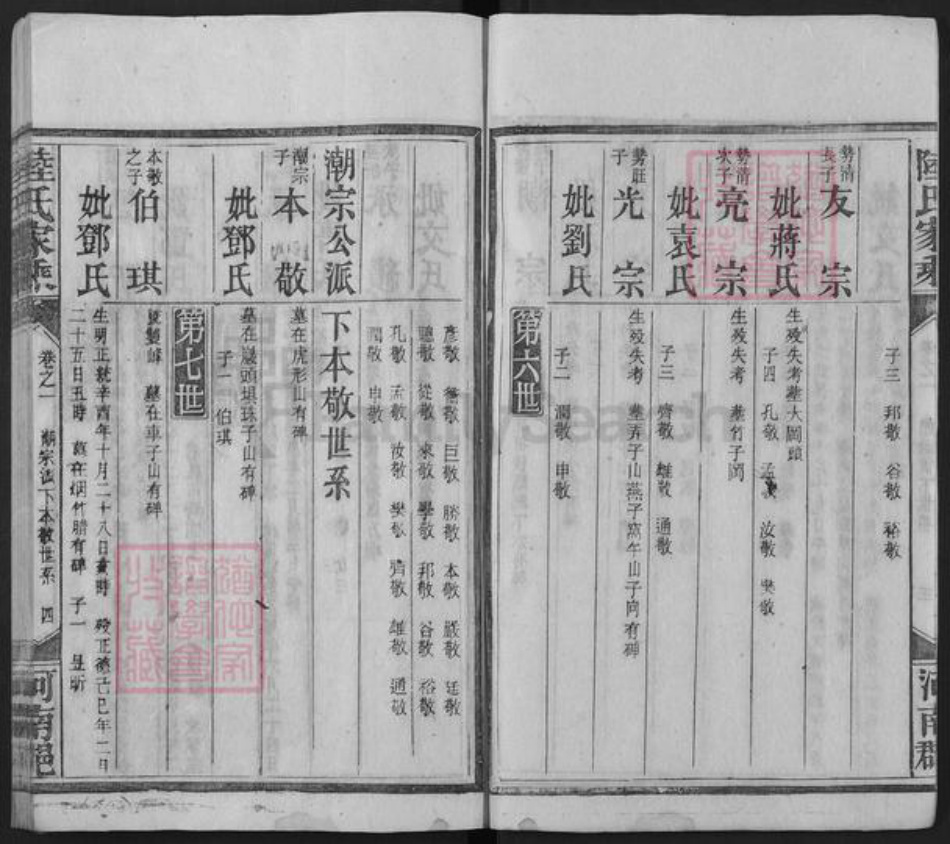 陸氏家乘
河南郡
子三 邦敬 谷敬 裕敬
勢清長子 友宗
妣蔣氏
生歿失考墓大岡頭
子四 孔敬 孟敬 汝敬 樊敬
勢清次子 亮宗
妣袁氏
生歿失考 墓竹子岡
子三 濟敬 雄敬 通敬
勢旺子 光宗
妣劉氏
生歿失考 墓弄子山燕子窩午山子向有碑
子二 潤敬 申敬
第六世
彥敬 衢敬 巨敬 勝敬 本敬 嚴敬 廷敬
聰敬 從敬 來敬 學敬 邦敬 谷敬 裕敬
孔敬 孟敬 汝敬 樊敬 濟敬 雄敬 通敬
潤敬 申敬
潮宗公派下本敬世系
潮宗子 本敬
妣鄧氏
墓在虎形山有碑
墓在 頭垻珠子山有碑
子一 伯琪
第七世
本敬之子 伯琪
妣鄧氏
墓在車子山有碑
生明正統辛酉年十月二十八日寅時 歿正德己巳年二月
二十五日丑時 墓在烟竹腊有碑 子一 昱昕
陸氏家乘
卷之一 潮宗派下本敬世系 四
河南邑